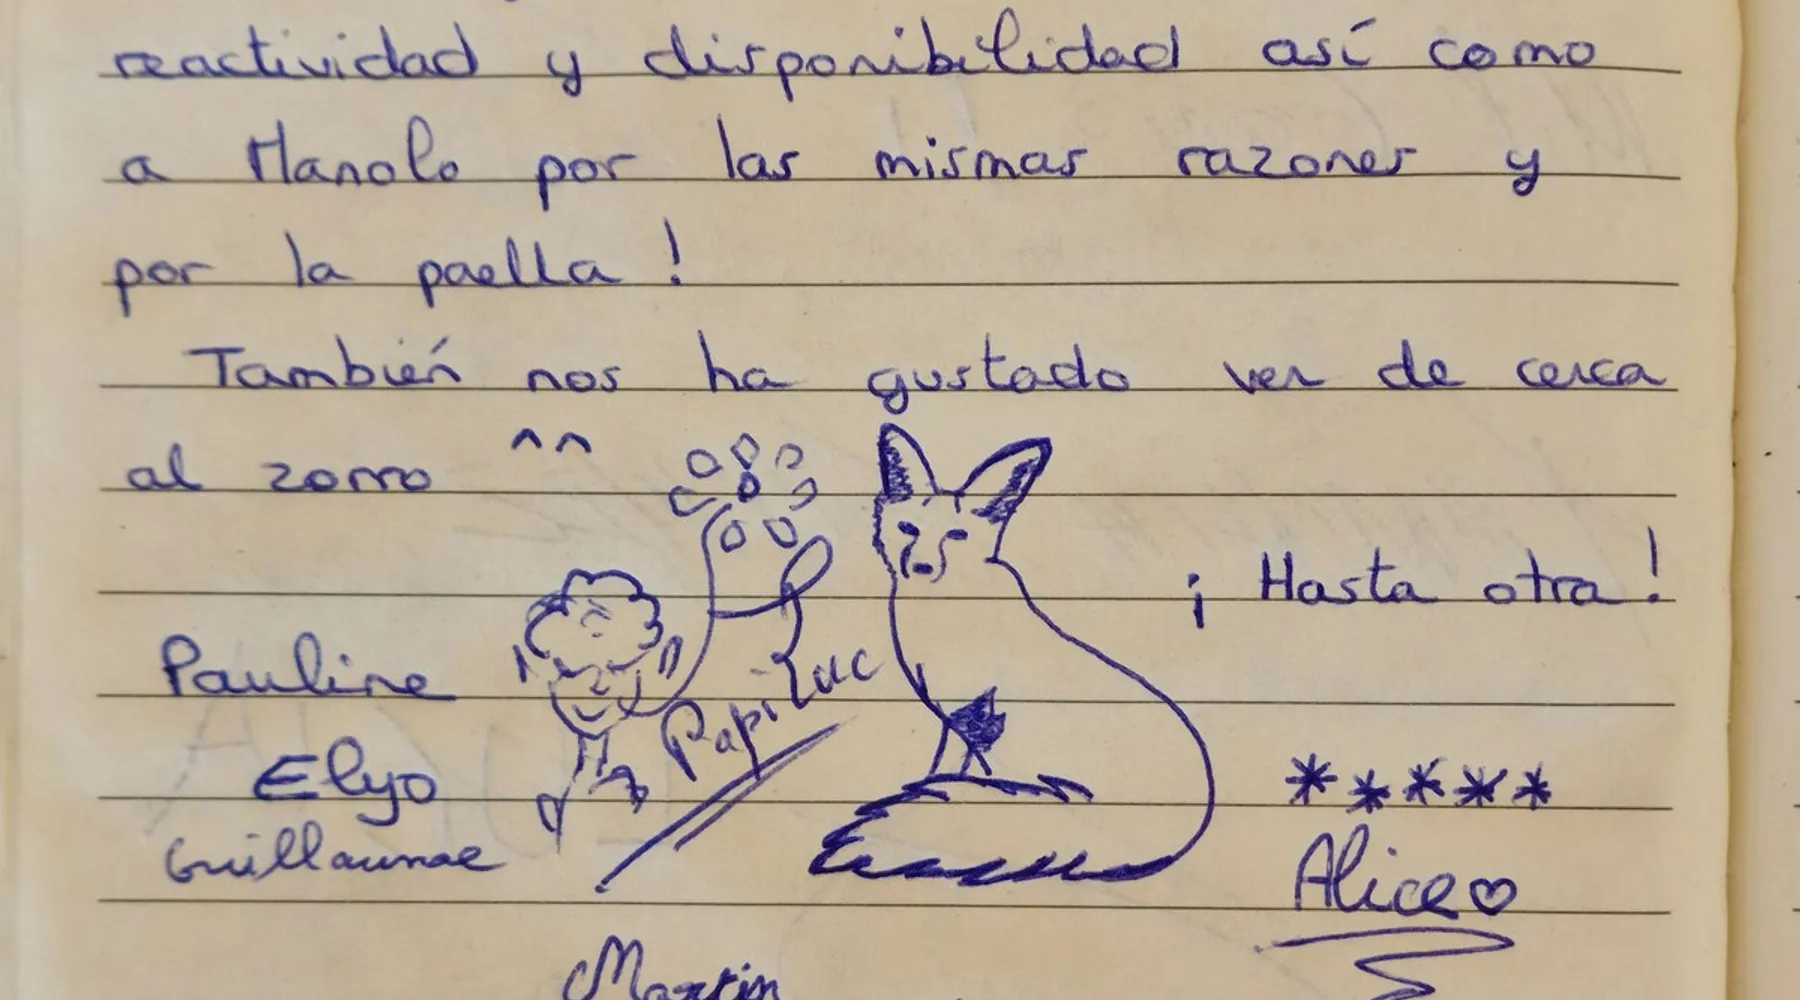 reactividad y disponibilidad así como
a Manolo por las mismas razones y
por la paella !
También nos ha gustado ver de cerca
al zorro ^^
¡ Hasta otra !
Pauline
Papi Luc
Elyo
*****
Guillaume
Alice ♡
Martin